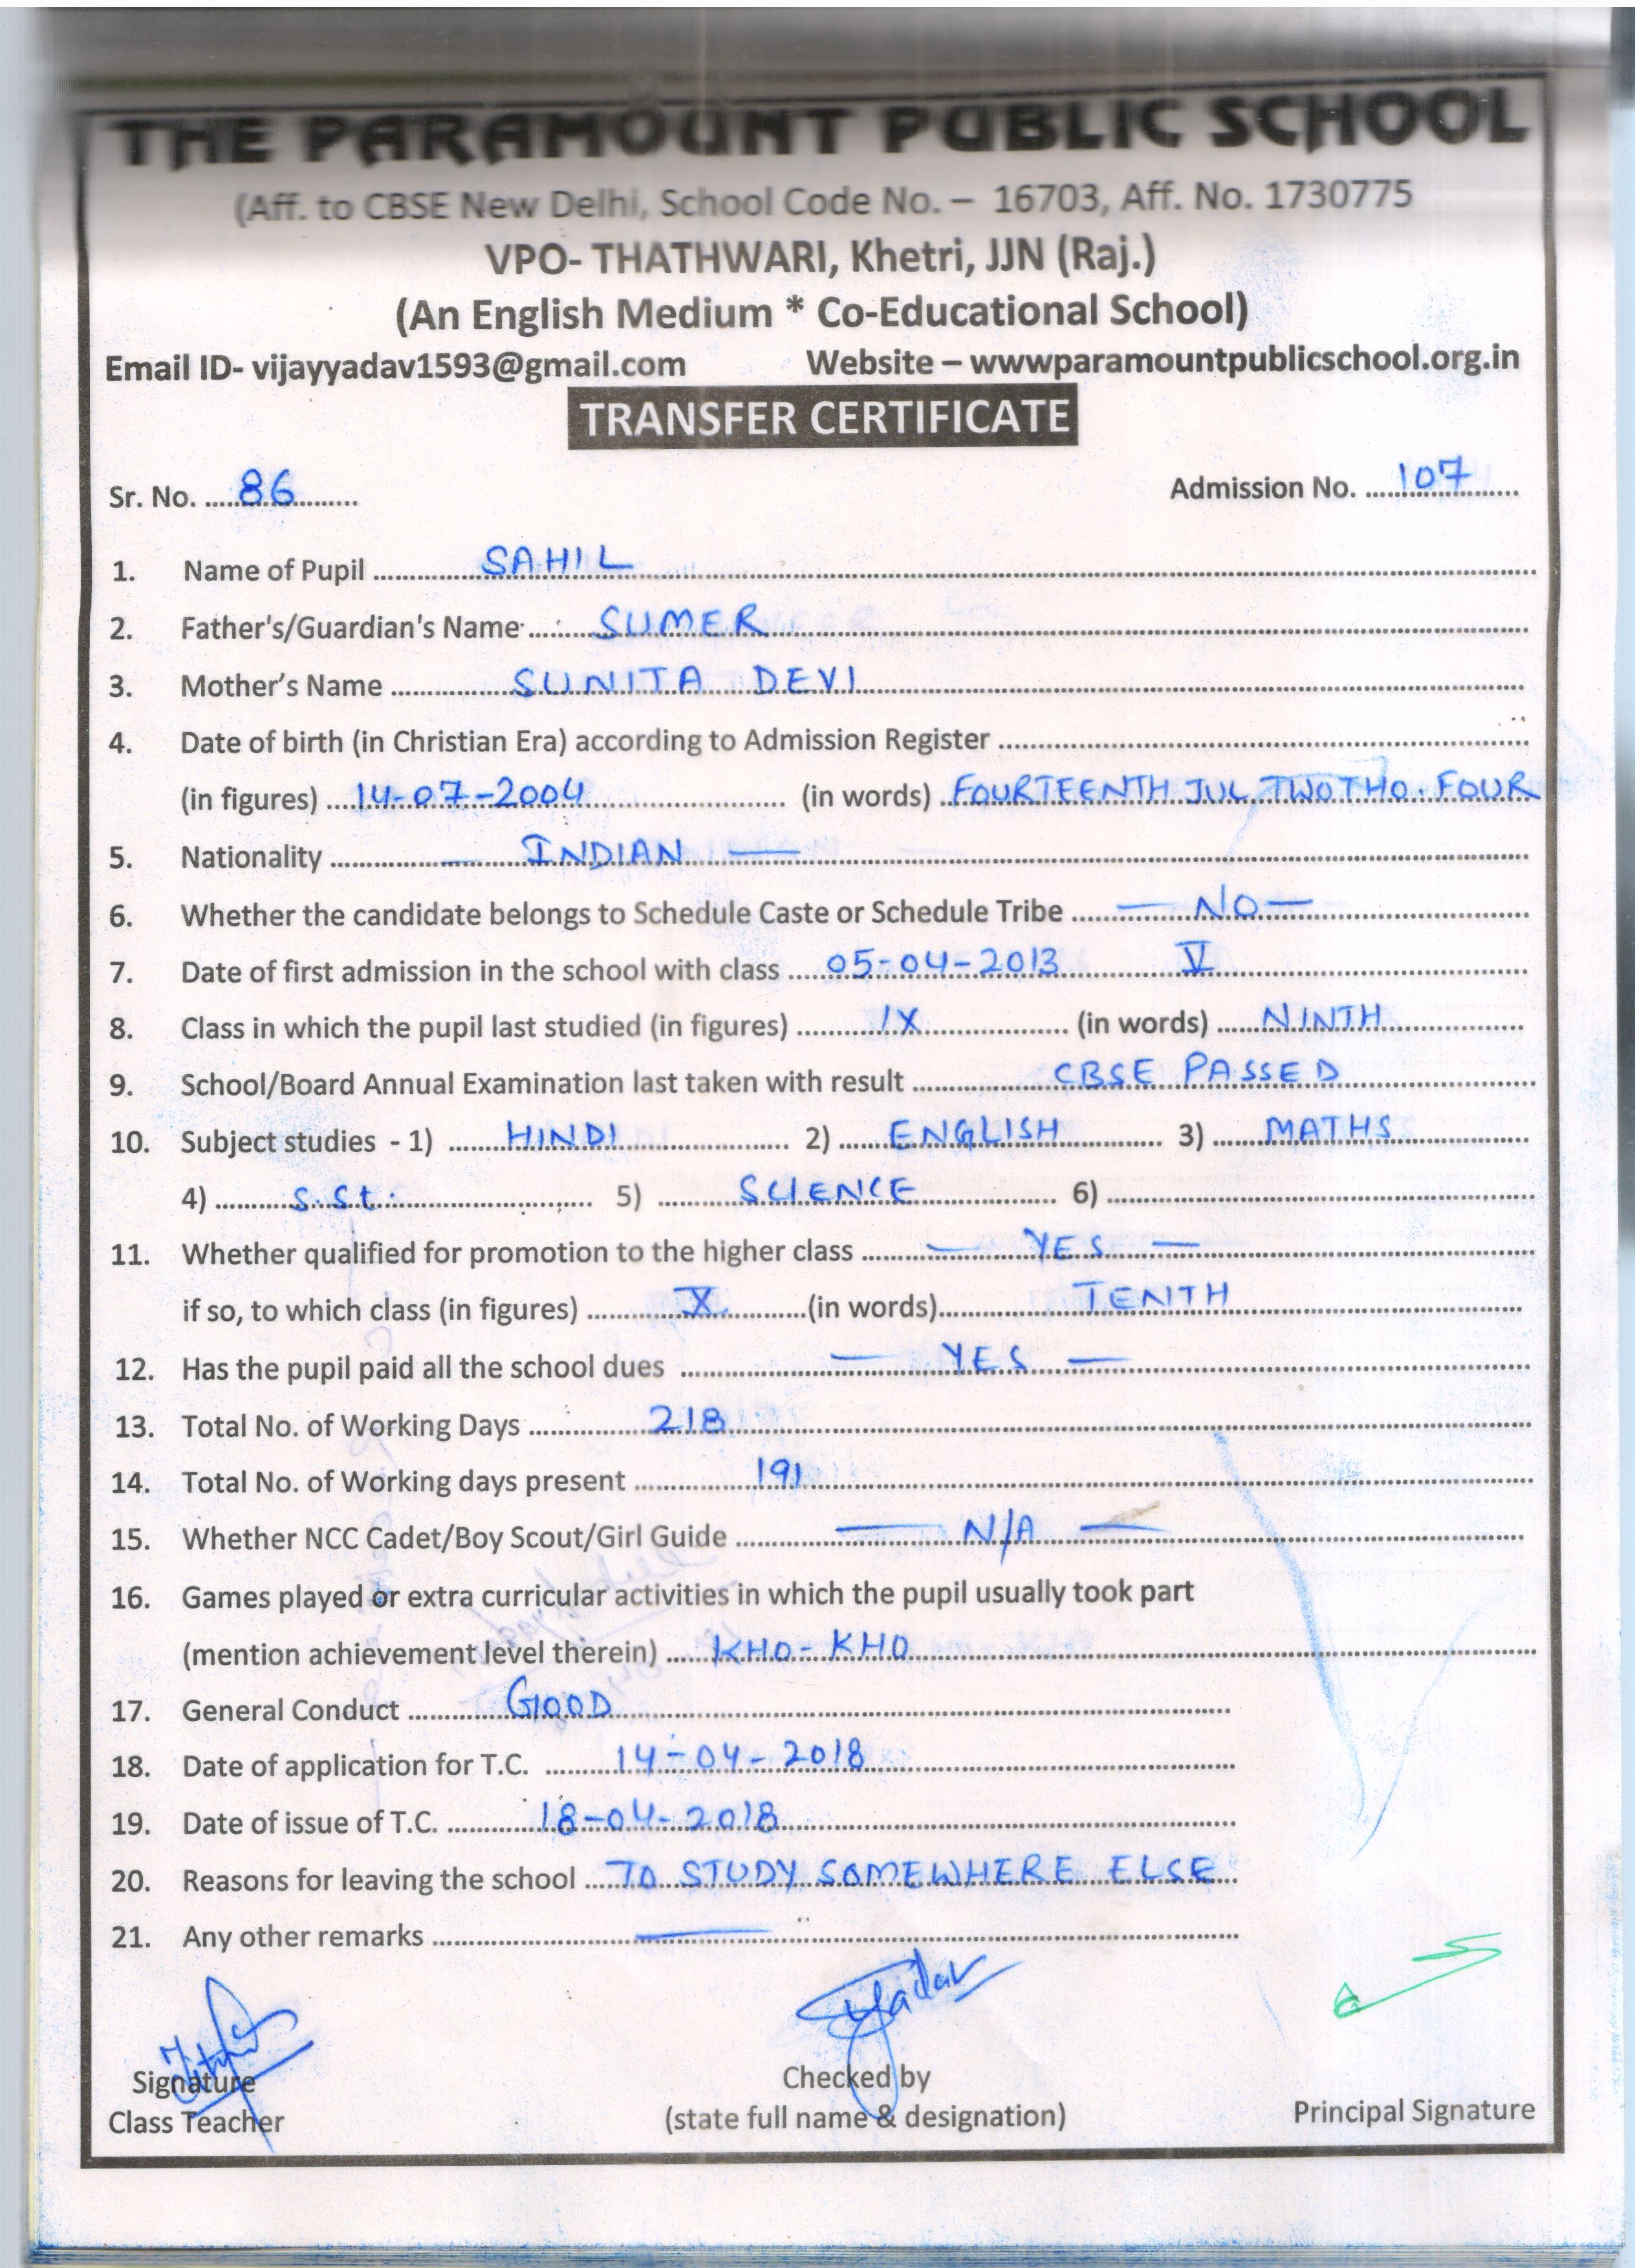 THE PARAMOUNT PUBLIC SCHOOL
(Aff. to CBSE New Delhi, School Code No. – 16703, Aff. No. 1730775
VPO- THATHWARI, Khetri, JJN (Raj.)
(An English Medium * Co-Educational School)
Email ID- vijayyadav1593@gmail.com Website – wwwparamountpublicschool.org.in
TRANSFER CERTIFICATE
Sr. No. 86 Admission No. 107
1. Name of Pupil SAHIL
2. Father's/Guardian's Name SUMER
3. Mother's Name SUNITA DEVI
4. Date of birth (in Christian Era) according to Admission Register
(in figures) 14-07-2004 (in words) FOURTEENTH JUL TWO THO. FOUR
5. Nationality — INDIAN —
6. Whether the candidate belongs to Schedule Caste or Schedule Tribe — NO —
7. Date of first admission in the school with class 05-04-2013 V
8. Class in which the pupil last studied (in figures) IX (in words) NINTH
9. School/Board Annual Examination last taken with result CBSE PASSED
10. Subject studies - 1) HINDI 2) ENGLISH 3) MATHS
4) S.St. 5) SCIENCE 6)
11. Whether qualified for promotion to the higher class — YES —
if so, to which class (in figures) X (in words) TENTH
12. Has the pupil paid all the school dues — YES —
13. Total No. of Working Days 218
14. Total No. of Working days present 191
15. Whether NCC Cadet/Boy Scout/Girl Guide — N/A —
16. Games played or extra curricular activities in which the pupil usually took part
(mention achievement level therein) KHO-KHO
17. General Conduct GOOD
18. Date of application for T.C. 14-04-2018
19. Date of issue of T.C. 18-04-2018
20. Reasons for leaving the school TO STUDY SOMEWHERE ELSE
21. Any other remarks —
Signature Checked by
Class Teacher (state full name & designation) Principal Signature